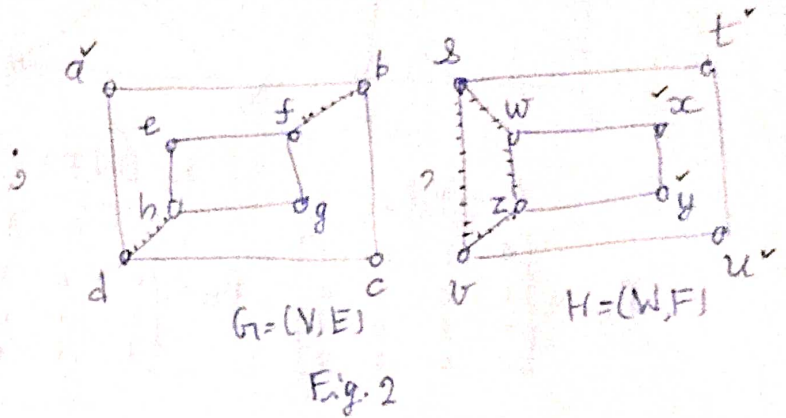 a b
e f
h g
d c
G=(V,E)
s t
w x
z y
v u
H=(W,F)
Fig. 2